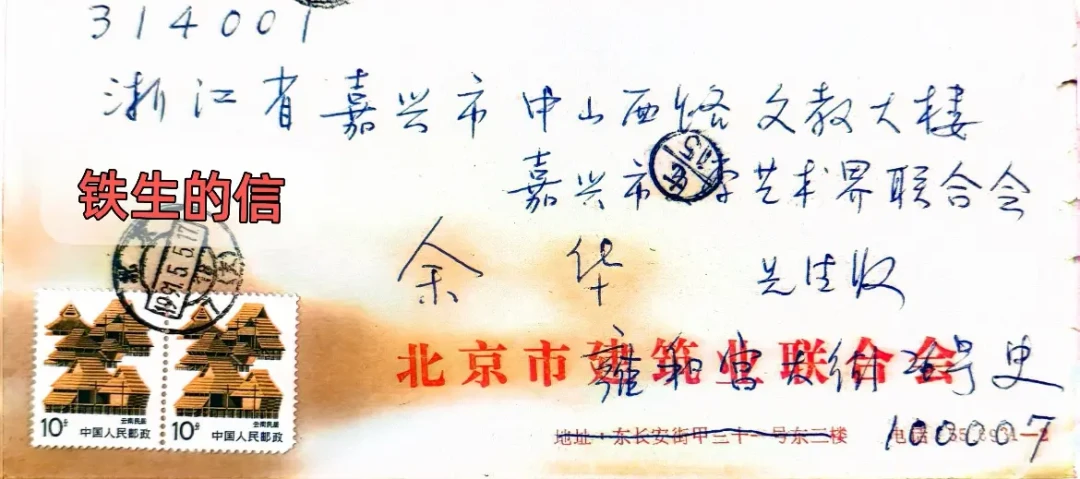 314001
浙江省嘉兴市中山西路文教大楼
嘉兴市文学艺术界联合会
铁生的信
余华 先生收
1991.5.5.17
北京市建筑业联合会
雍和宫大街 号 史
地址：东长安街甲三十一号东二楼
电话
100007
10分 云南民居 中国人民邮政
10分 云南民居 中国人民邮政